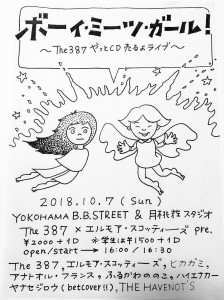 ボーイ・ミーツ・ガール!
〜The387 やっとCD売るよライブ〜
2018.10.7(Sun)
YOKOHAMA B.B.STREET & 月桃荘スタジオ
The 387 × エルモア・スコッティーズ pre.
¥2000+1D ※学生は¥1500+1D
open/start → 16:00 / 16:30
The 387, エルモア・スコッティーズ, ヒカガミ,
アナトオル・フランス, ふるかわののこ, ハイエナカー
ヤナセジロウ(betcover!!), THE HAVENOT'S